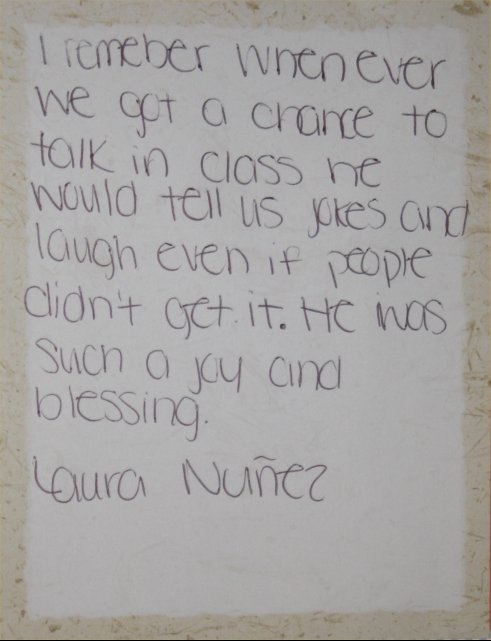 I remeber whenever
we got a chance to
talk in class he
would tell us jokes and
laugh even if people
didn't get it. He was
such a joy and
blessing.
Laura Nuñez